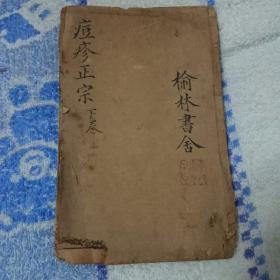 榆林書舍
痘疹正宗 下卷